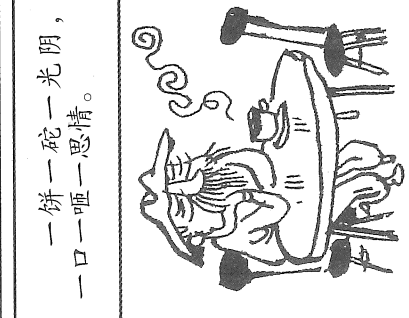 一饼一砣一光阴，
一口一咂一思情。